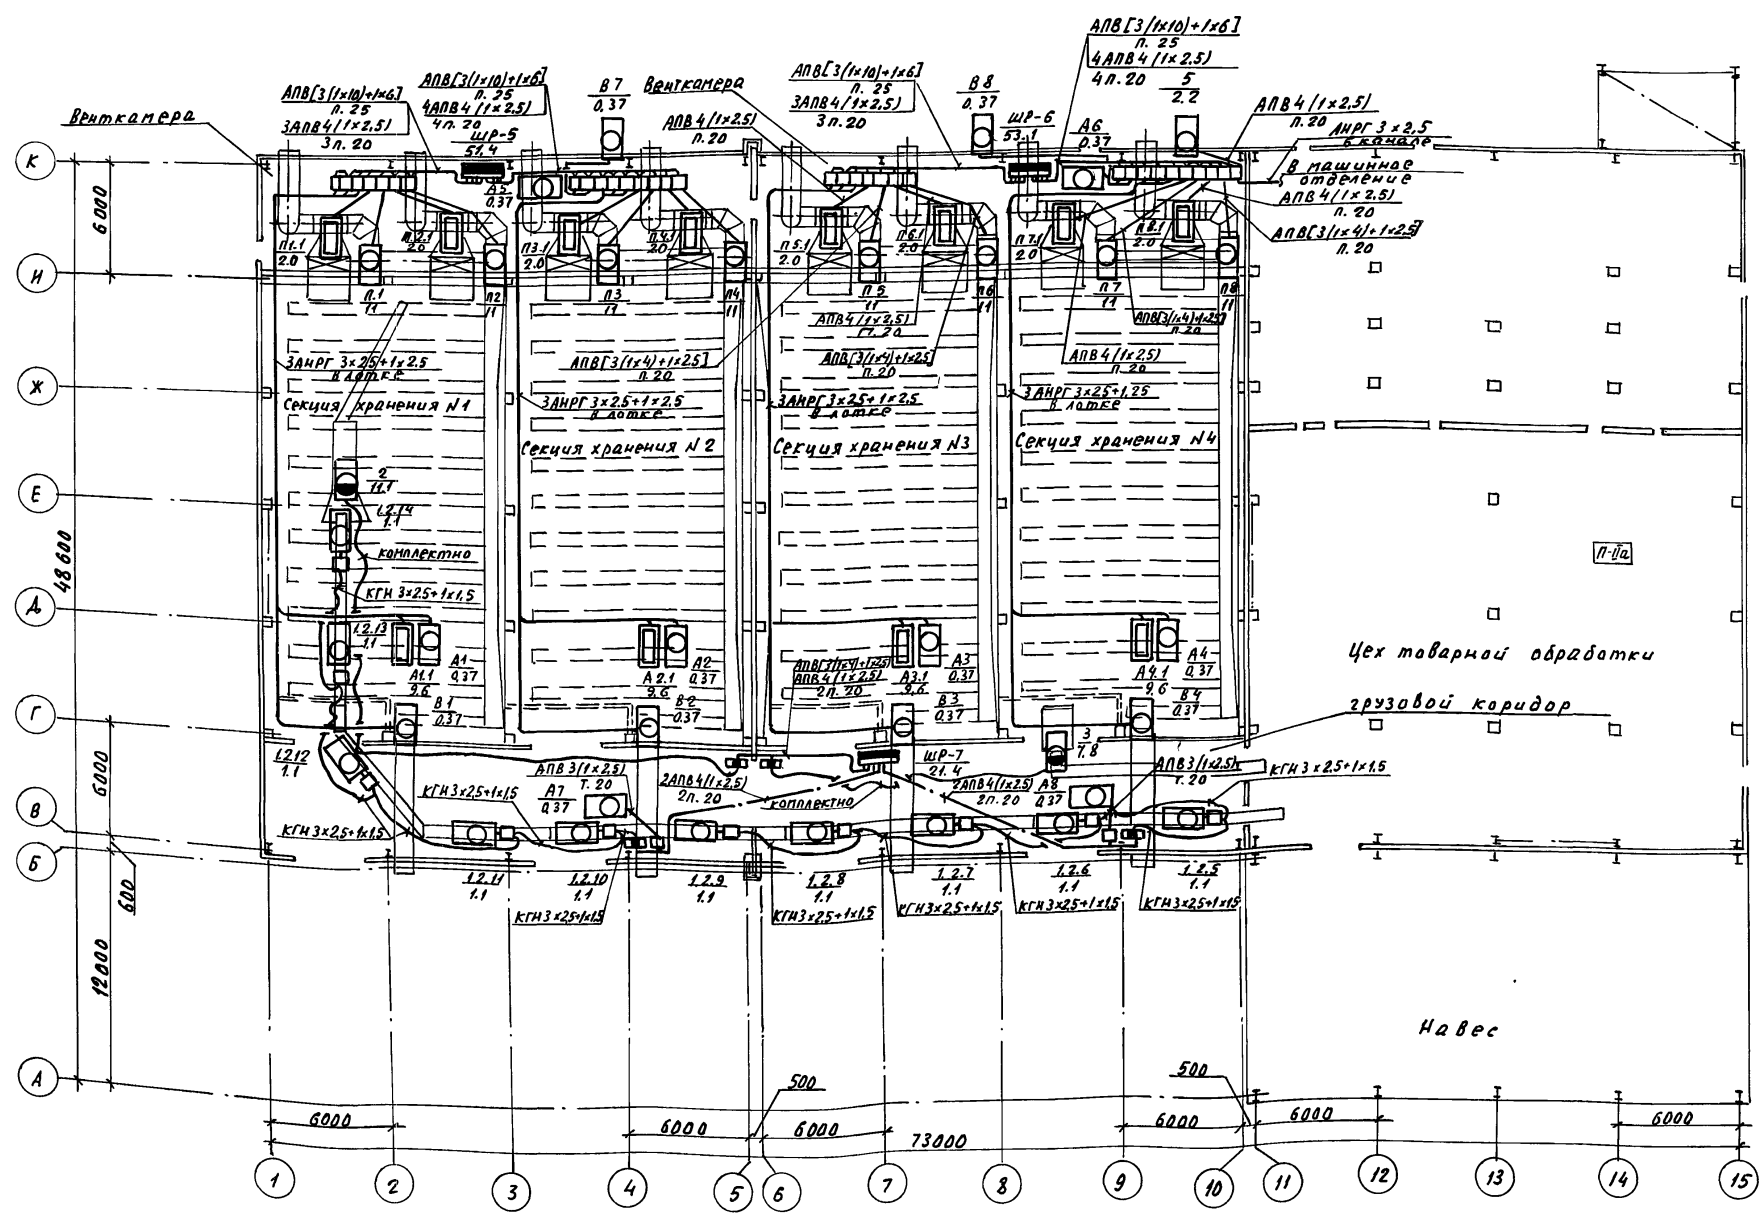 АПВ[3(1×10)+1×6]
п. 25
4АПВ4(1×2,5)
4п.20
5
2.2
АПВ[3(1×10)+1×6]
п. 25
3АПВ4(1×2,5)
3п.20
АПВ[3(1×10)+1×6]
п. 25
4АПВ4(1×2,5)
4п.20
В7
0,37
Венткамера
АПВ4(1×2,5)
п.20
АПВ[3(1×10)+1×6]
п. 25
3АПВ4(1×2,5)
3п.20
В8
0.37
ШР-6
53.1
А6
0,37
АПВ4(1×2,5)
п.20
АНРГ 3×2,5
в канале
В машинное
отделение
АПВ4(1×2,5)
п.20
АПВ[3(1×4)+1×2,5]
п.20
Венткамера
ШР-5
51.4
А5
0,37
К
И
Ж
Е
Д
Г
В
Б
А
6000
48 600
6000
600
12000
П1.1
2.0
П.2.1
2.0
П3.1
2.0
П.4.1
2.0
П5.1
2.0
П6.1
2.0
П7.1
2.0
П8.1
2.0
П.1
11
П2
11
П3
11
П4
11
П.5
11
П6
11
П7
11
П8
11
АПВ4(1×2,5)
п.20
АПВ[3(1×4)+1×2,5]
п.20
АПВ[3(1×4)+1×2,5]
п.20
АПВ[3(1×4)+1×2,5]
п.20
АПВ4(1×2,5)
п.20
3АНРГ 3×2,5+1×2.5
в лотке
3АНРГ 3×2,5+1×2,5
в лотке
3АНРГ 3×2,5+1×2,5
в лотке
3АНРГ 3×2,5+1,25
в лотке
Секция хранения N1
Секция хранения N2
Секция хранения N3
Секция хранения N4
2
11.1
1.2.14
1.1
комплектно
КГН 3×2.5+1×1,5
1.2.13
1.1
А1
0,37
А1.1
9.6
В1
0,37
А2
0,37
А2.1
9.6
В2
0,37
АПВ[3(1×4)+1×2,5]
АПВ4(1×2,5)
2п.20
А3
0,37
А3.1
9,6
В3
0,37
А4
0,37
А4.1
9,6
В4
0,37
3
7,8
П-IIа
Цех товарной обработки
грузовой коридор
1.2.12
1.1
КГН3×2,5+1×1,5
КГН3×2,5+1×1,5
АПВ3(1×2,5)
Т.20
А7
0,37
2АПВ4(1×2,5)
2п.20
комплектно
ШР-7
21.4
2АПВ4(1×2,5)
2п.20
А8
0,37
АПВ3(1×2,5)
т.20
КГН3×2,5+1×1,5
1.2.11
1.1
1.2.10
1.1
1.2.9
1.1
1.2.8
1.1
1.2.7
1.1
1.2.6
1.1
1.2.5
1.1
КГН3×2,5+1×1,5
КГН3×2,5+1×1,5
КГН3×2,5+1×1,5
КГН3×2,5+1×1,5
КГН3×2,5+1×1,5
Навес
6000
6000
500
6000
73000
6000
500
6000
6000
1
2
3
4
5
6
7
8
9
10
11
12
13
14
15